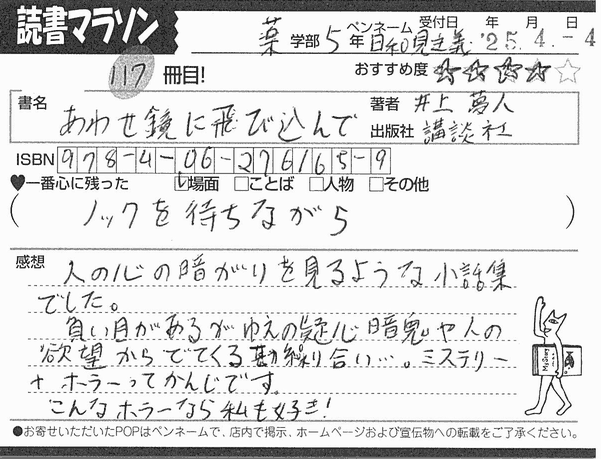 読書マラソン
薬 学部 5年 ペンネーム 日和見主義 受付日 '25年 4月 -4日
117 冊目! おすすめ度 ★★★★☆
書名 あわせ鏡に飛び込んで
著者 井上 夢人
出版社 講談社
ISBN 978-4-06-276165-9
♥一番心に残った ☑場面 □ことば □人物 □その他
( ノックを待ちながら )
感想 人の心の暗がりを見るような小話集
でした。
負い目があるがゆえの疑心暗鬼や人の
欲望からでてくる勘繰り合い…。ミステリー
+ホラーってかんじです。
こんなホラーなら私も好き!
●お寄せいただいたPOPはペンネームで、店内で掲示、ホームページおよび宣伝物への転載をご了承ください。